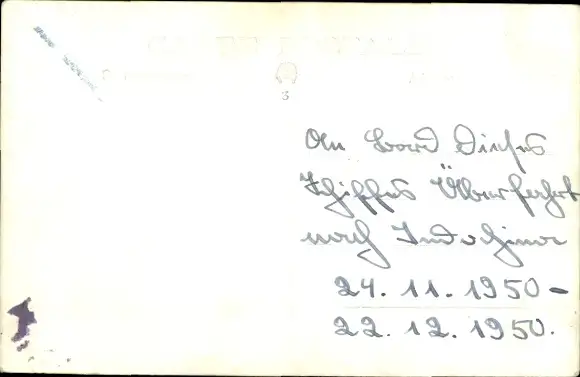 3
An Bord Dieses
Schiffes Überfahrt
nach Indochina
24. 11. 1950 –
22. 12. 1950.